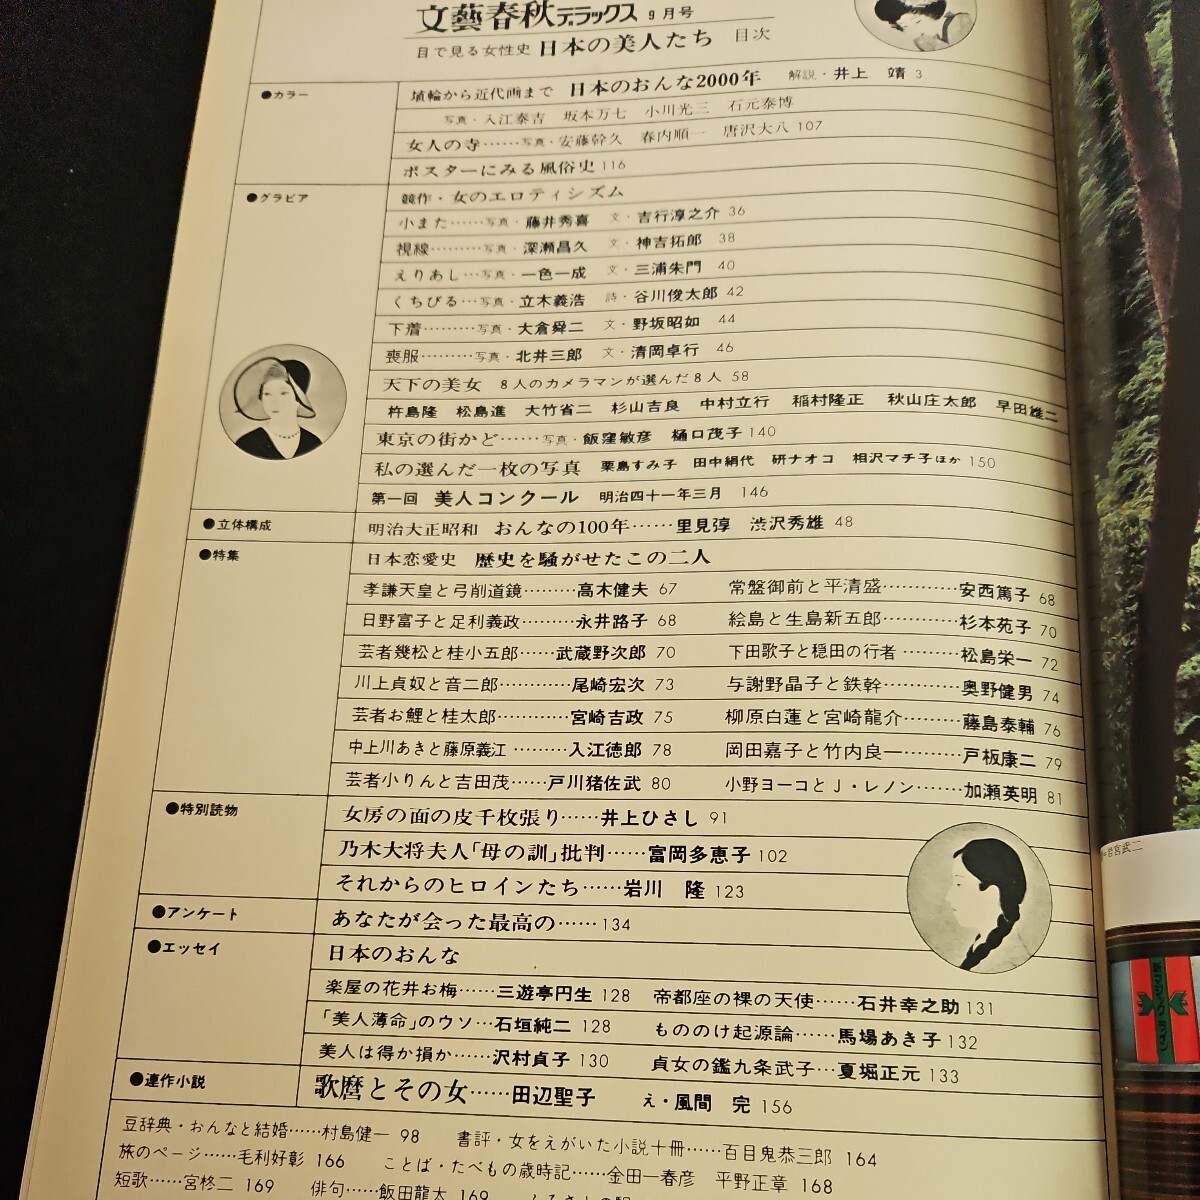 文藝春秋デラックス 9月号
目で見る女性史 日本の美人たち 目次
●カラー
埴輪から近代画まで 日本のおんな2000年 解説・井上 靖 3
写真・入江泰吉 坂本万七 小川光三 石元泰博
女人の寺……写真・安藤幹久 春内順一 唐沢大八 107
ポスターにみる風俗史 116
●グラビア
競作・女のエロティシズム
小また……写真・藤井秀喜 文・吉行淳之介 36
視線………写真・深瀬昌久 文・神吉拓郎 38
えりあし…写真・一色一成 文・三浦朱門 40
くちびる…写真・立木義浩 詩・谷川俊太郎 42
下着………写真・大倉舜二 文・野坂昭如 44
喪服………写真・北井三郎 文・清岡卓行 46
天下の美女 8人のカメラマンが選んだ8人 58
杵島隆 松島進 大竹省二 杉山吉良 中村立行 稲村隆正 秋山庄太郎 早田雄二
東京の街かど……写真・飯窪敏彦 樋口茂子 140
私の選んだ一枚の写真 栗島すみ子 田中絹代 研ナオコ 相沢マチ子ほか 150
第一回 美人コンクール 明治四十一年三月 146
●立体構成
明治大正昭和 おんなの100年……里見弴 渋沢秀雄 48
●特集
日本恋愛史 歴史を騒がせたこの二人
孝謙天皇と弓削道鏡………高木健夫 67
常盤御前と平清盛…………安西篤子 68
日野富子と足利義政………永井路子 68
絵島と生島新五郎…………杉本苑子 70
芸者幾松と桂小五郎……武蔵野次郎 70
下田歌子と穏田の行者………松島栄一 72
川上貞奴と音二郎…………尾崎宏次 73
与謝野晶子と鉄幹…………奥野健男 74
芸者お鯉と桂太郎…………宮崎吉政 75
柳原白蓮と宮崎龍介………藤島泰輔 76
中上川あきと藤原義江………入江徳郎 78
岡田嘉子と竹内良一………戸板康二 79
芸者小りんと吉田茂……戸川猪佐武 80
小野ヨーコとJ・レノン……加瀬英明 81
●特別読物
女房の面の皮千枚張り……井上ひさし 91
乃木大将夫人「母の訓」批判……富岡多恵子 102
それからのヒロインたち……岩川 隆 123
●アンケート
あなたが会った最高の……134
●エッセイ
日本のおんな
楽屋の花井お梅……三遊亭円生 128
帝都座の裸の天使……石井幸之助 131
「美人薄命」のウソ…石垣純二 128
もののけ起源論……馬場あき子 132
美人は得か損か……沢村貞子 130
貞女の鑑九条武子…夏堀正元 133
●連作小説
歌麿とその女……田辺聖子 え・風間 完 156
豆辞典・おんなと結婚……村島健一 98
書評・女をえがいた小説十冊……百目鬼恭三郎 164
旅のページ……毛利好彰 166
ことば・たべもの歳時記……金田一春彦 平野正章 168
短歌……宮柊二 169
俳句……飯田龍太 169
岩宮武二